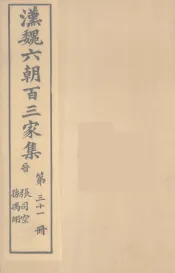 漢魏六朝百三家集 晉
第三十一冊
張司空
孫馮翊